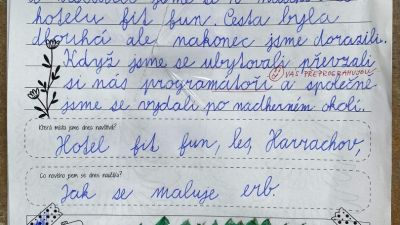 hotelu fit fun. Cesta byla
dlouhá ale nakonec jsme dorazili.
Když jsme se ubytovali převzali
VÁS PŘEPROGRAMUJOU
si nás programátoři a společně
jsme se vydali po nadherném okolí.
Která místa jsme dnes navštívil?
Hotel fit fun, les, Harrachov,
Co nového jsem se dnes naučil/a?
Jak se maluje erb